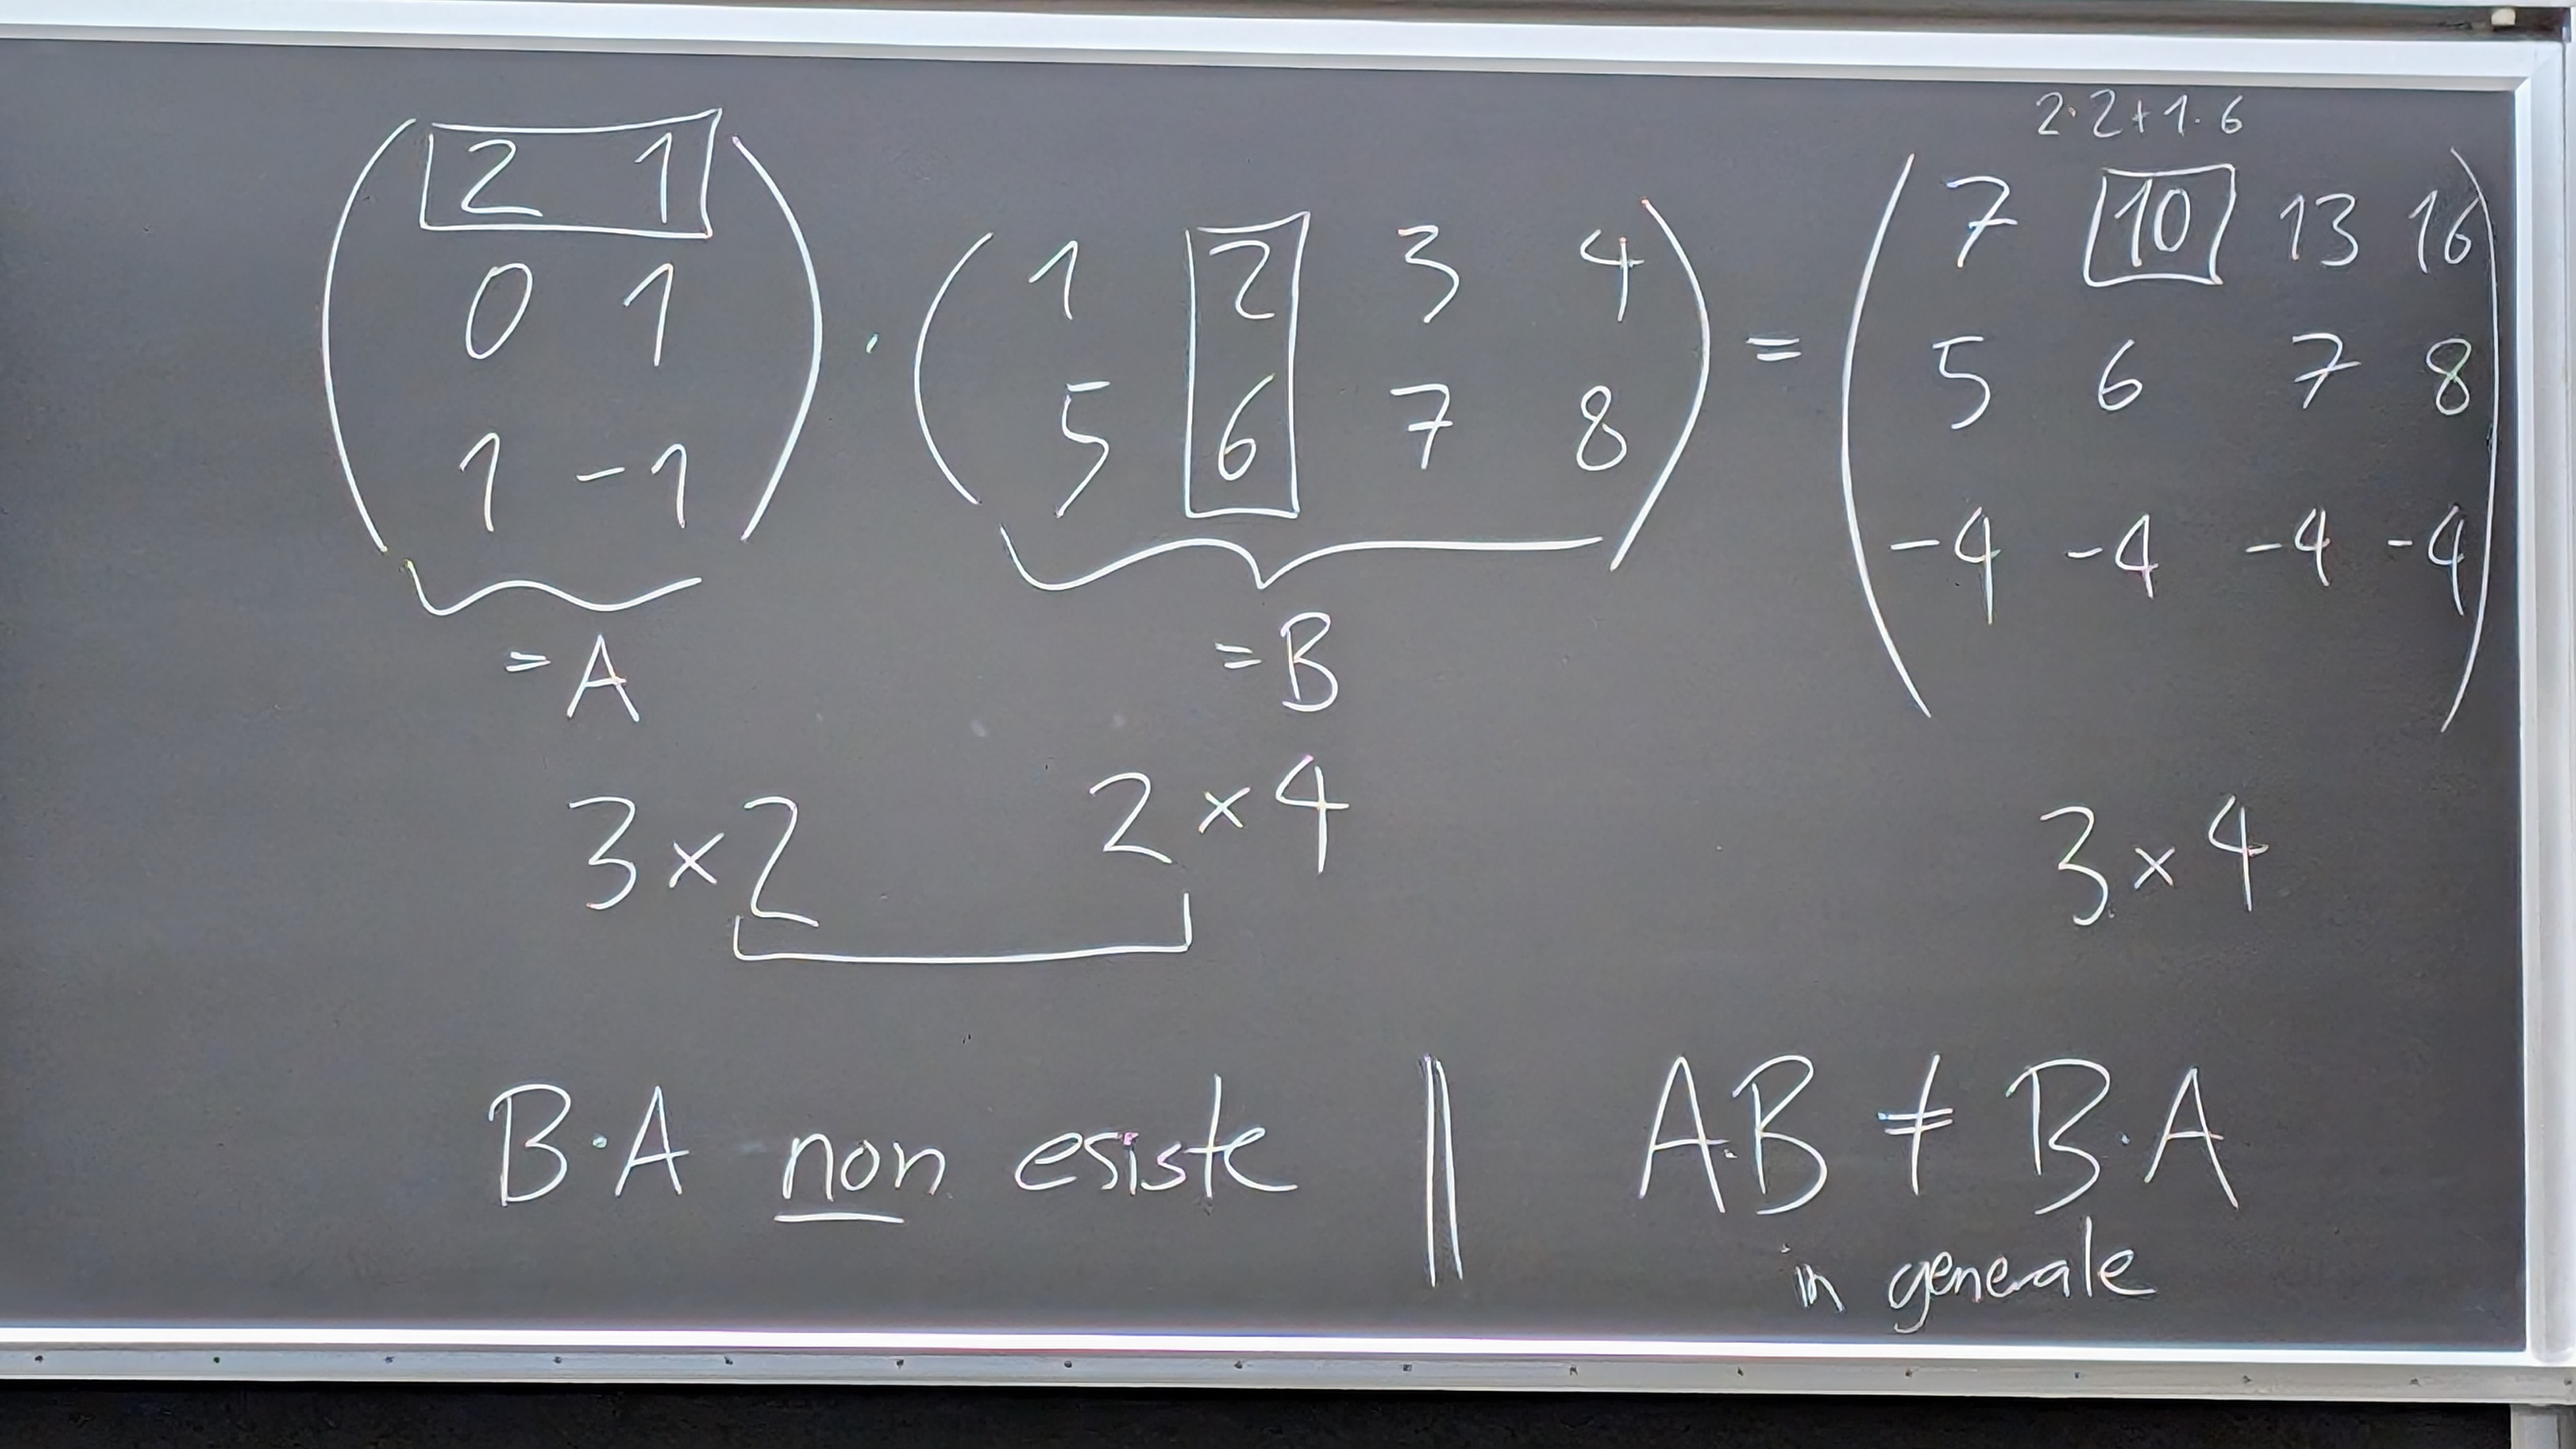 2·2+1·6
2 1
0 1
1 -1
·
1 2 3 4
5 6 7 8
=
7 10 13 16
5 6 7 8
-4 -4 -4 -4
= A
= B
3×2 2×4 3×4
B·A non esiste || A·B ≠ B·A
in generale